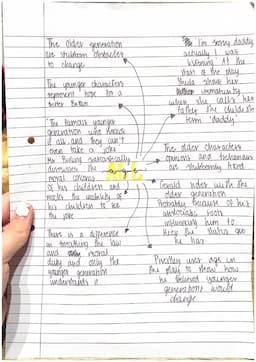 The older generation
are stubborn obstacles
to change
The younger characters
represent hope for a
better Britain
"The famous younger
generation who knows
it all and they can't
even take a joke"
Mr Birling sarcastically
dismisses the
moral concerns
of his children and
mocks the inability of
his children to see
the joke
There is a difference
in breaking the law
and moral
duty and only the
younger generation
understands it
"I'm sorry daddy
actually I was
listening" At the
start of the play
Sheila shows her
immaturity
when she calls her
father the childish
term "daddy"
AGE
The older characters
opinions and behaviour
are stubbornly fixed
Gerald sides with the
older generation
Probably because of his
aristocratic roots
influencing him to
keep the status quo
he has
Priestley uses age in
the play to show how
he believed younger
generations would
change